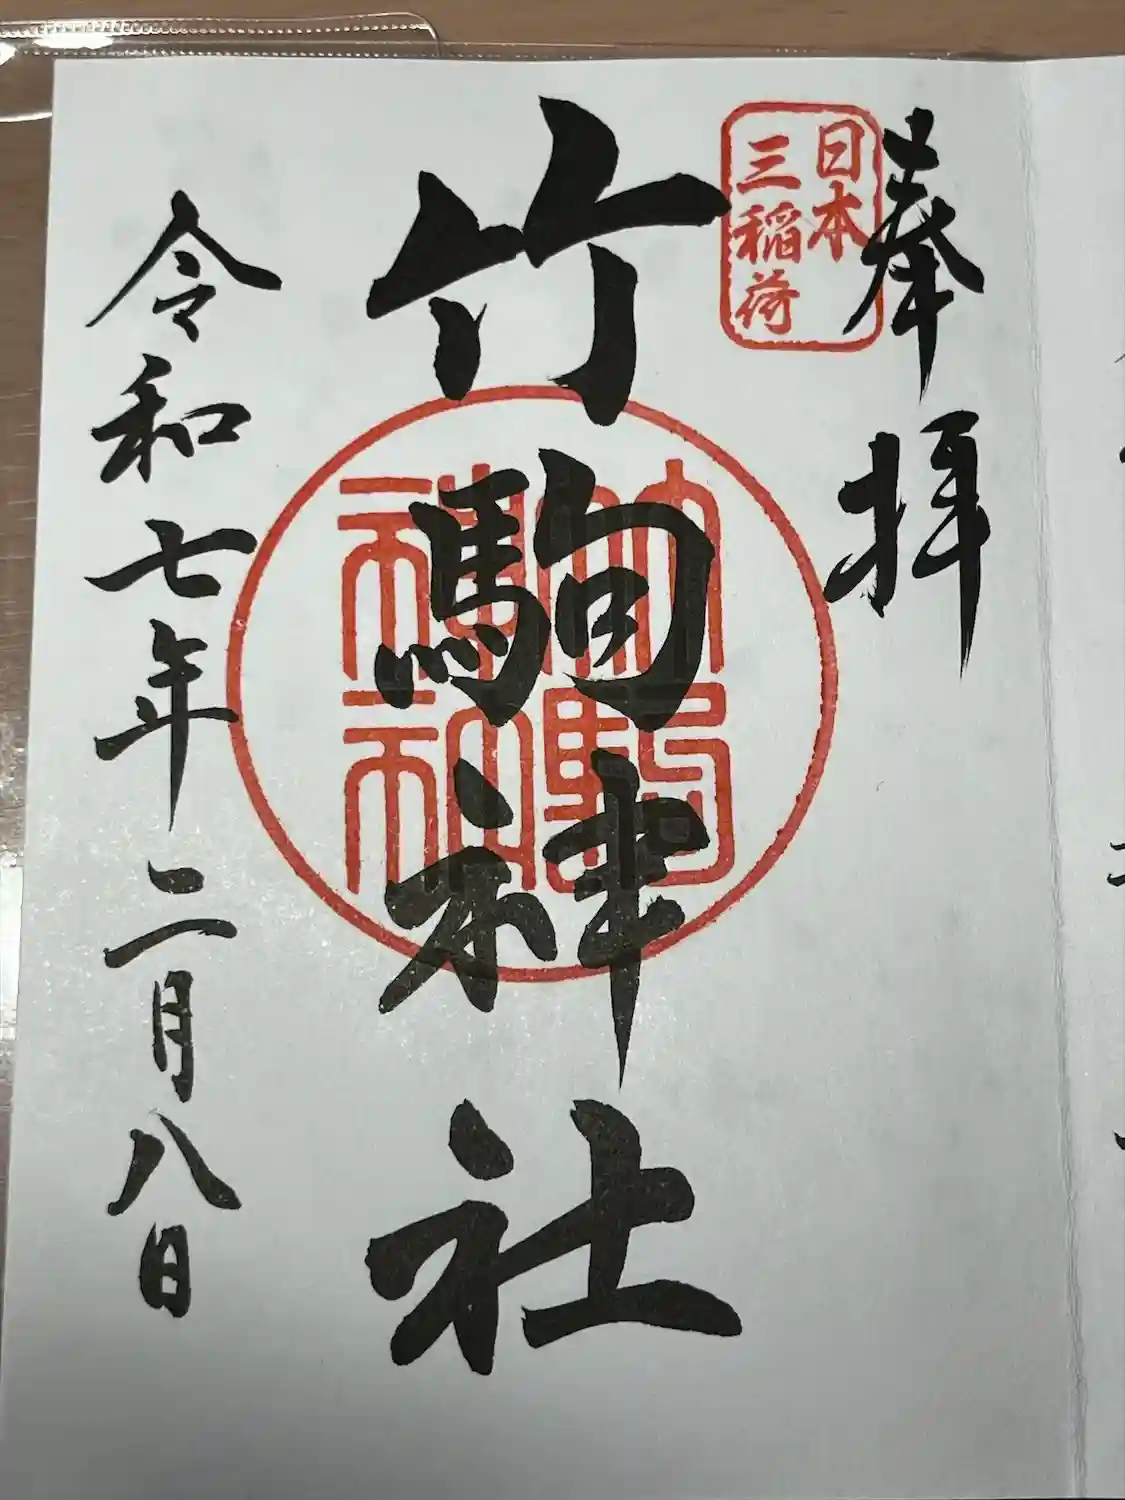 奉拝
日本
三稲荷
竹駒神社
竹駒
神社
令和七年二月八日